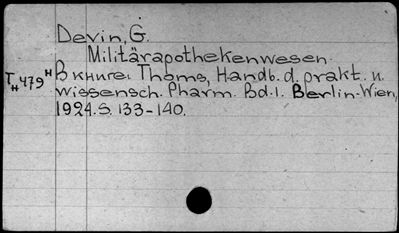 Devin, G.
Militärapothekenwesen.
T#479H В книге: Thoms, Handb. d. prakt. u.
wissensch. Pharm. Bd. 1. Berlin-Wien,
1924. S. 133-140.